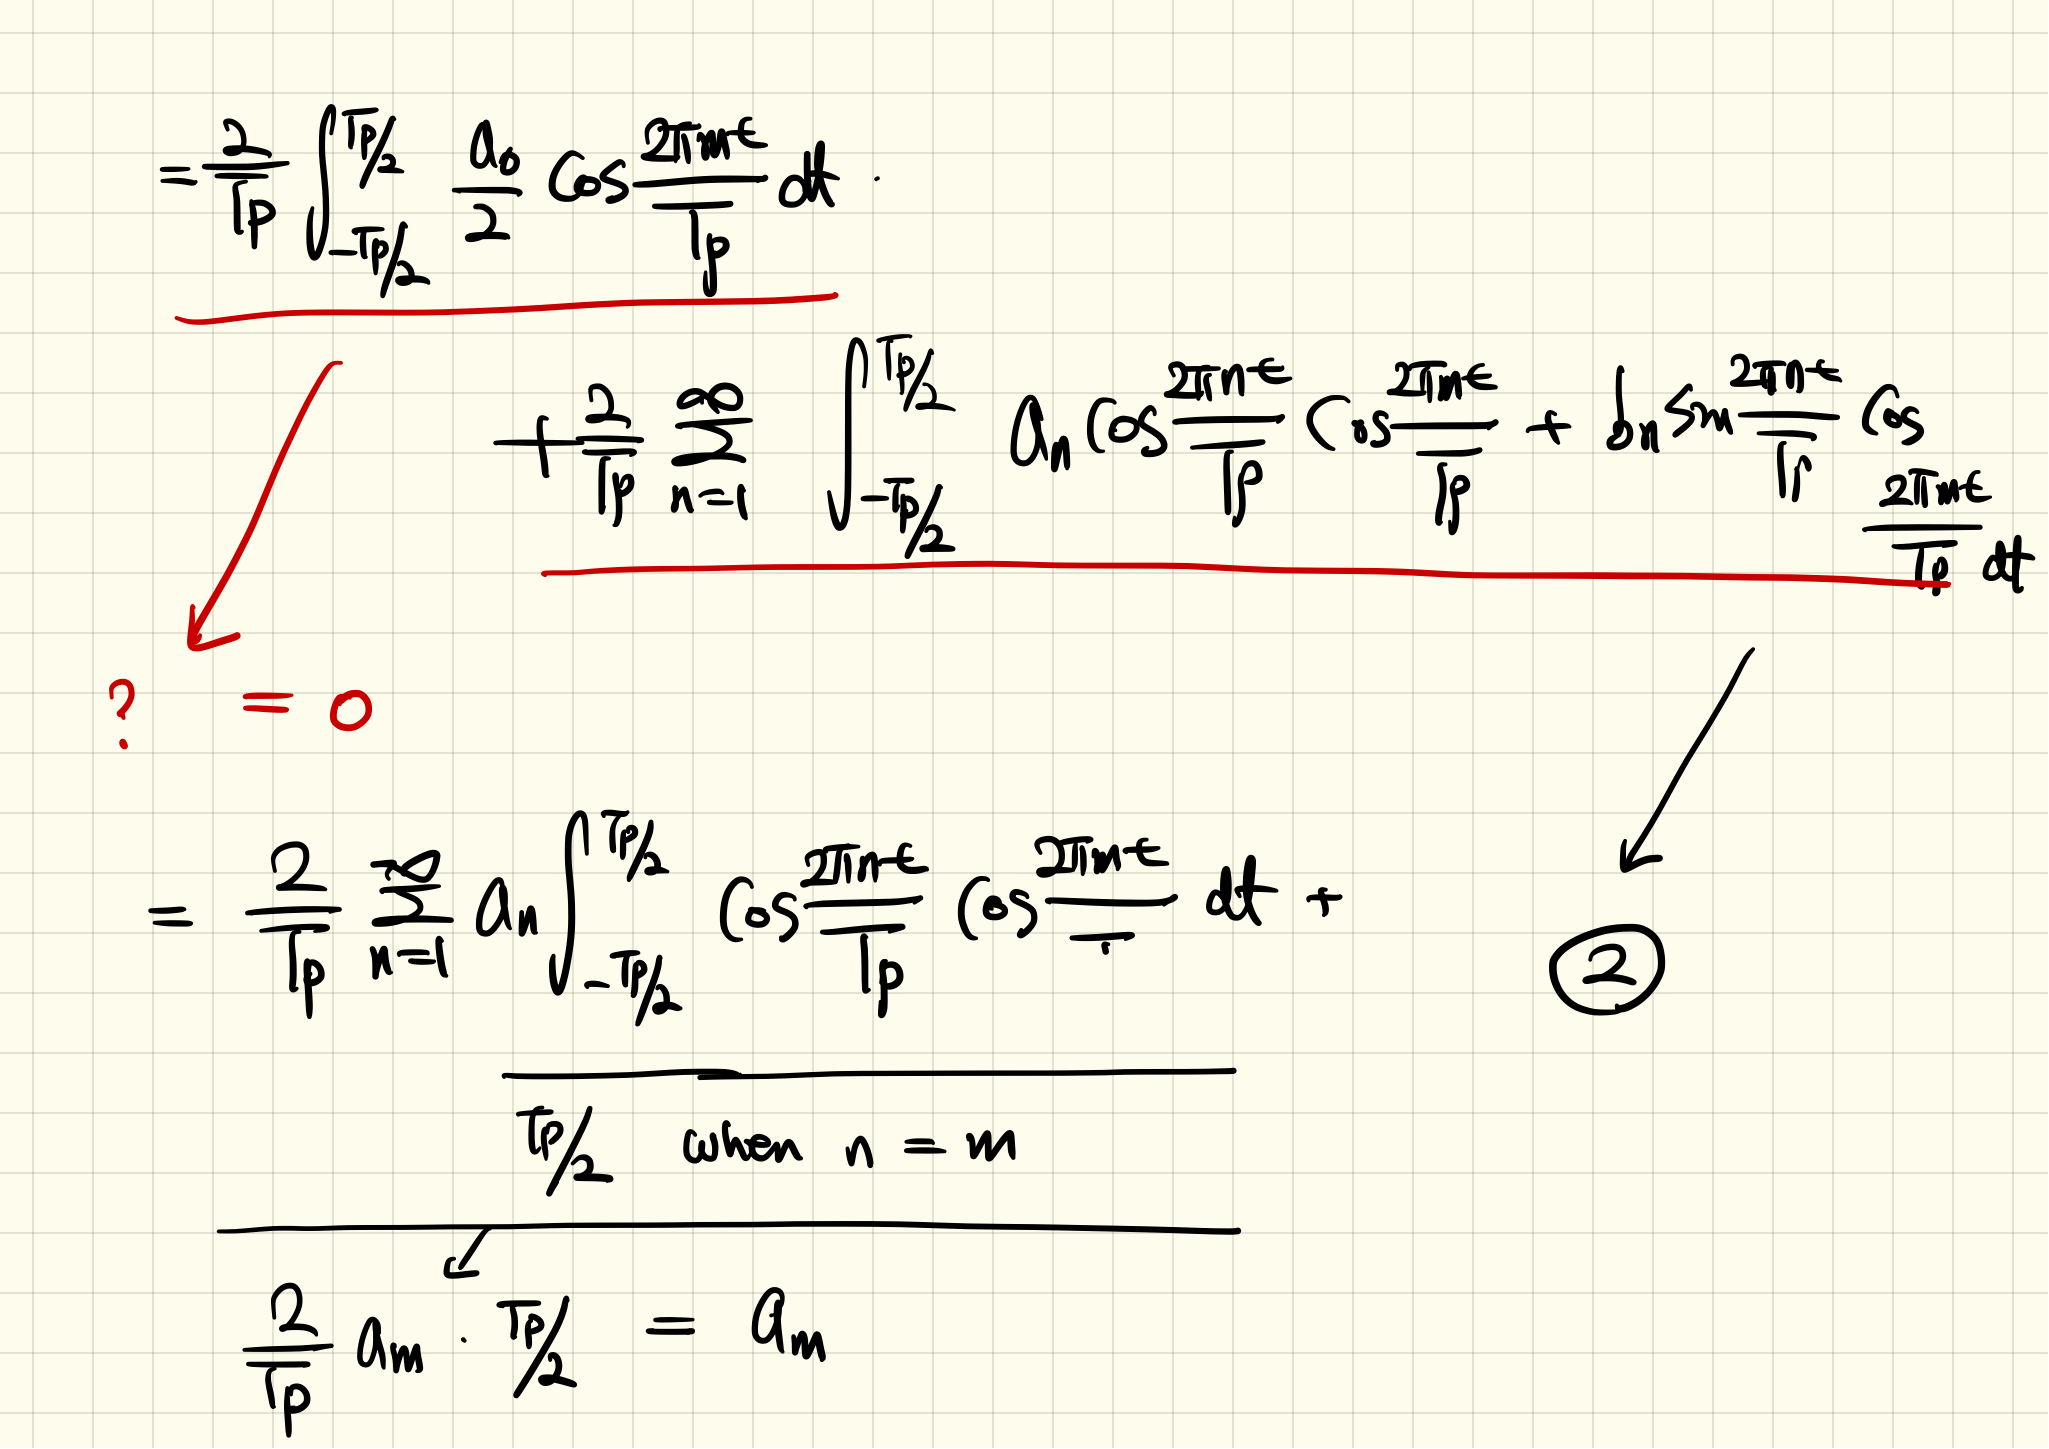 = 2/Tp ∫_{-Tp/2}^{Tp/2} a₀/2 Cos 2πmt/Tp dt .
+ 2/Tp ∑_{n=1}^{∞} ∫_{-Tp/2}^{Tp/2} aₙ Cos 2πnt/Tp Cos 2πmt/Tp + bₙ Sin 2πnt/Tp Cos 2πmt/Tp dt
? = 0
= 2/Tp ∑_{n=1}^{∞} aₙ ∫_{-Tp/2}^{Tp/2} Cos 2πnt/Tp Cos 2πmt/ dt +
②
Tp/2 when n = m
2/Tp aₘ · Tp/2 = aₘ